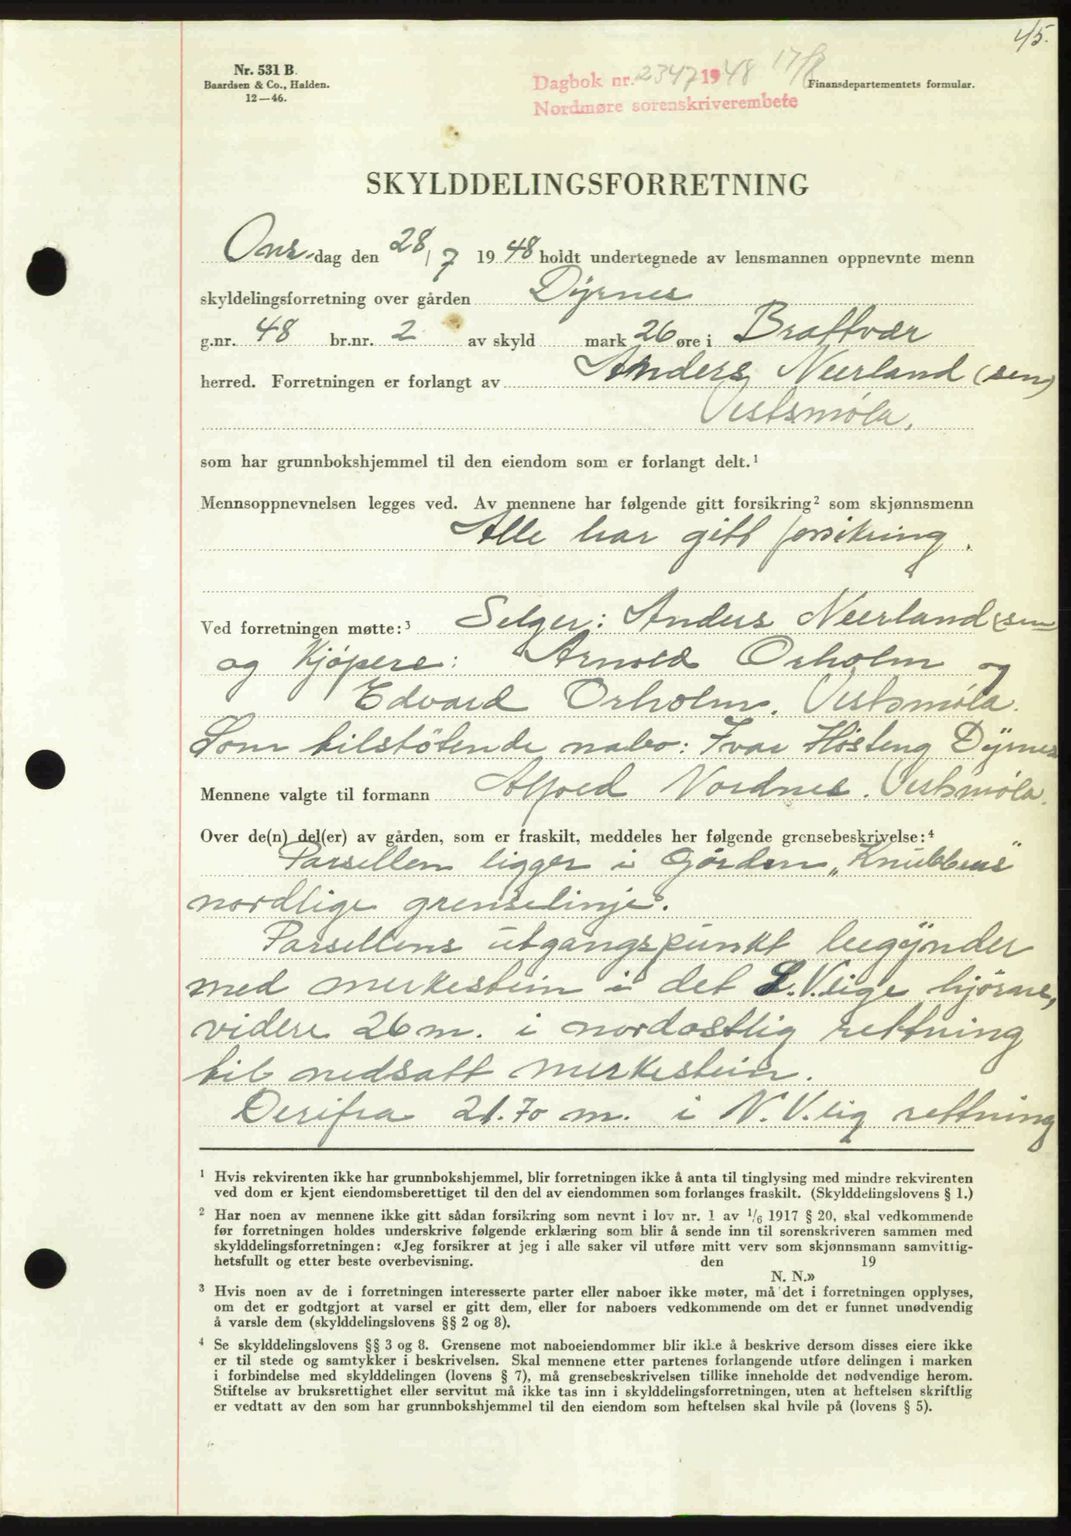 45.
Nr. 531 B.
Baardsen & Co., Halden.
12—46.
Dagbok nr. 2347 1948 17/8
Nordmøre sorenskriverembete
Finansdepartementets formular.
SKYLDDELINGSFORRETNING
Onsdag den 28/7 1948 holdt undertegnede av lensmannen oppnevnte menn
skyldelingsforretning over gården Dyrnes
g.nr. 48 br.nr. 2 av skyld mark 26 øre i Brattvær
herred. Forretningen er forlangt av Anders Neerland (sen)
Vestsmøla,
som har grunnbokshjemmel til den eiendom som er forlangt delt.¹
Mennsoppnevnelsen legges ved. Av mennene har følgende gitt forsikring² som skjønnsmenn
Alle har gitt forsikring.
Ved forretningen møtte:³ Selger: Anders Neerland (sen
og Kjøpere: Arnold Orholm og
Edvard Orholm. Vestsmøla.
Som tilstøtende nabo: Ivar Høsteng Dyrnes
Mennene valgte til formann Alfred Nordnes. Vestsmøla.
Over de(n) del(er) av gården, som er fraskilt, meddeles her følgende grensebeskrivelse:⁴
Parsellen ligger i Gården „Knubbens"
nordlige grenselinje.
Parsellens utgangspunkt begynder
med merkestein i det S.V.lige hjørne,
videre 26 m. i nordostlig rettning
til nedsatt merkestein.
Derifra 21.70 m. i N.V.lig rettning
¹ Hvis rekvirenten ikke har grunnbokshjemmel, blir forretningen ikke å anta til tinglysing med mindre rekvirenten
ved dom er kjent eiendomsberettiget til den del av eiendommen som forlanges fraskilt. (Skylddelingslovens § 1.)
² Har noen av mennene ikke gitt sådan forsikring som nevnt i lov nr. 1 av 1/6 1917 § 20, skal vedkommende
før forretningen holdes underskrive følgende erklæring som blir å sende inn til sorenskriveren sammen med
skylddelingsforretningen: «Jeg forsikrer at jeg i alle saker vil utføre mitt verv som skjønnsmann samvittig-
hetsfullt og etter beste overbevisning. den 19
N. N.»
³ Hvis noen av de i forretningen interesserte parter eller naboer ikke møter, må det i forretningen opplyses,
om det er godtgjort at varsel er gitt dem, eller for naboers vedkommende om det er funnet unødvendig
å varsle dem (skylddelingslovens §§ 2 og 8).
⁴ Se skylddelingslovens §§ 3 og 8. Grensene mot naboeiendommer blir ikke å beskrive dersom disses eiere ikke
er til stede og samtykker i beskrivelsen. Skal mennene etter partenes forlangende utføre delingen i marken
i forbindelse med skylddelingen (lovens § 7), må grensebeskrivelsen tillike inneholde det nødvendige herom.
Stiftelse av bruksrettighet eller servitut må ikke tas inn i skylddelingsforretningen, uten at heftelsen skriftlig
er vedtatt av den som har grunnbokshjemmel til den eiendom som heftelsen skal hvile på (lovens § 5).